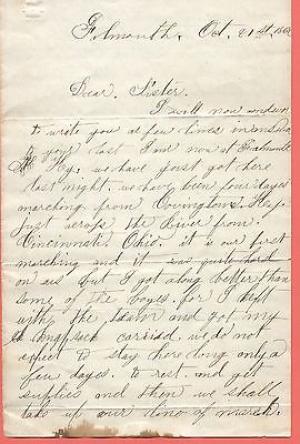 Falmouth, Oct. 21st, 1862
Dear, Sister.
I will now endevor
to write you a few lines in answer
to your last I am now at Falmouth
Ky. we have just got here
last night. we have been four dayes
marching from Covington, Ky.
Just across the River from,
Cincinnati, Ohio. it is our first
marching and it was quite hard
on us but I got along better than
some of the boyes. for I kept
with the teams and got my
knapsack carried. we do not
expect to stay here long only a
few dayes. to rest. and get
supplies and then we shall
take up our line of march.